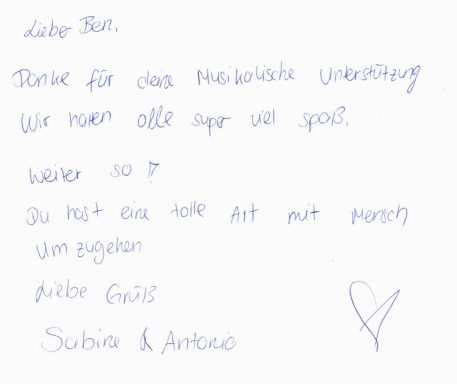 Lieber Ben,
Danke für deine Musikalische Unterstützung
Wir hatten alle super viel spaß.
Weiter so !
Du hast eine tolle Art mit Mensch
umzugehen
Liebe Grüß
Sabine & Antonio